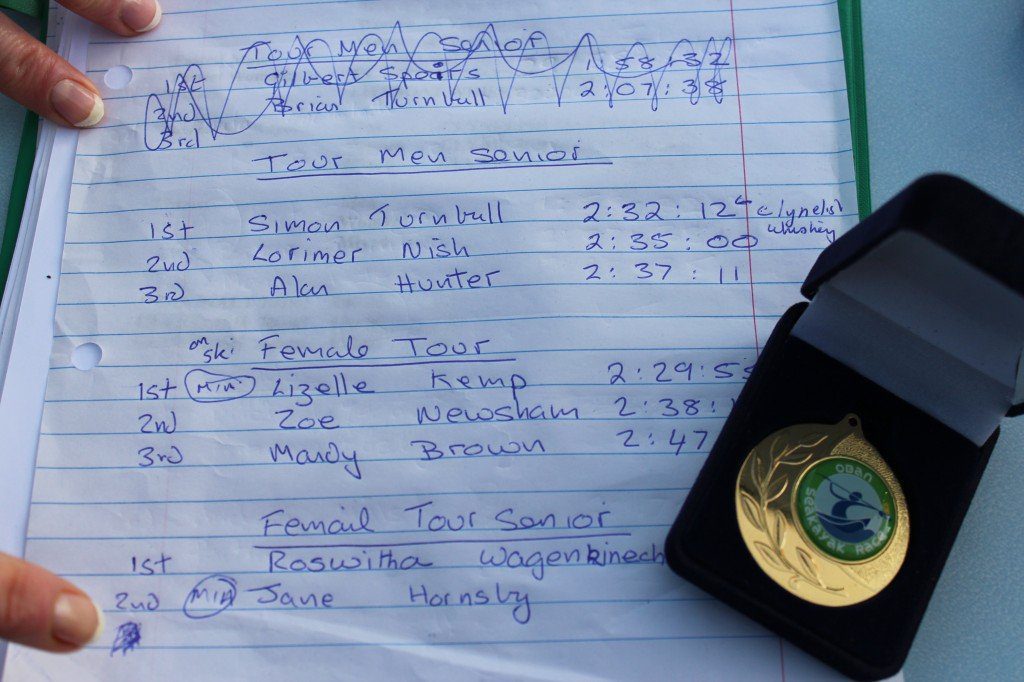 Tour Men Senior
1st Gilbert Spoors 1:58:32
2nd Brian Turnbull 2:07:38
3rd
Tour Men Senior
1st Simon Turnbull 2:32:12
2nd Lorimer Nish 2:35:00 whiskey
3rd Alan Hunter 2:37:11
on ski Female Tour
1st Lizelle Kemp 2:29:55
2nd Zoe Newsham 2:38:
3rd Mandy Brown 2:47
Femail Tour Senior
1st Roswitha
2nd Jane Hornsby
OBAN
SEAKAYAK RACE